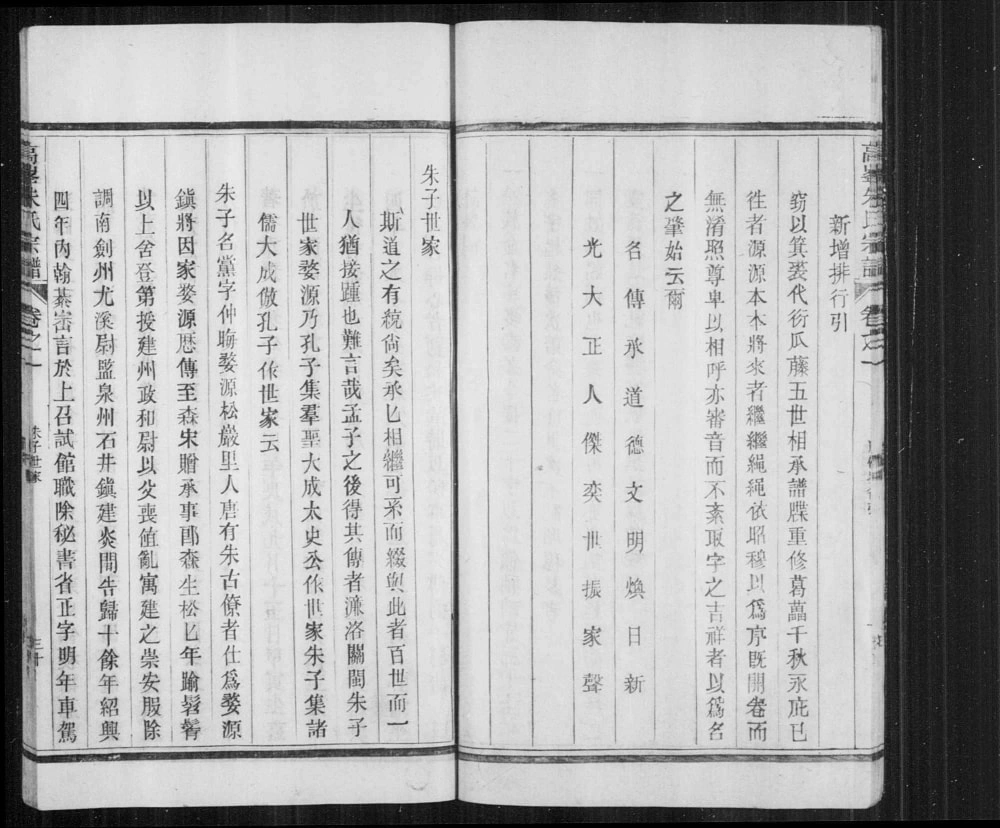 新增排行引
窃以箕裘代衍瓜藤五世相承譜牒重修葛藟千秋永庇已
徃者源源本本將來者繼繼繩繩依昭穆以爲序旣開卷而
無淆照尊卑以相呼亦審音而不紊取字之吉祥者以爲名
之肇始云爾
名傳永道德文明煥日新
光大正人傑奕世振家聲
朱子世家
斯道之有統尙矣承匕相繼可系而綴與此者百世而一
人猶接踵也難言哉孟子之後得其傳者濂洛關閩朱子
世家婺源乃孔子集羣聖大成太史公作世家朱子集諸
儒大成倣孔子作世家云
朱子名黨字仲晦婺源松巖里人唐有朱古僚者仕爲婺源
鎭將因家婺源歷傳至森宋贈承事郎森生松匕年踰髫齔
以上舍登第授建州政和尉以父喪值亂寓建之崇安服除
調南劍州尤溪尉監泉州石井鎭建炎間告歸十餘年紹興
四年內翰綦崈言於上召試館職除秘書省正字明年車駕
高峯朱氏宗譜
卷之一
朱子世家
三十
高峯朱氏宗譜
卷之一